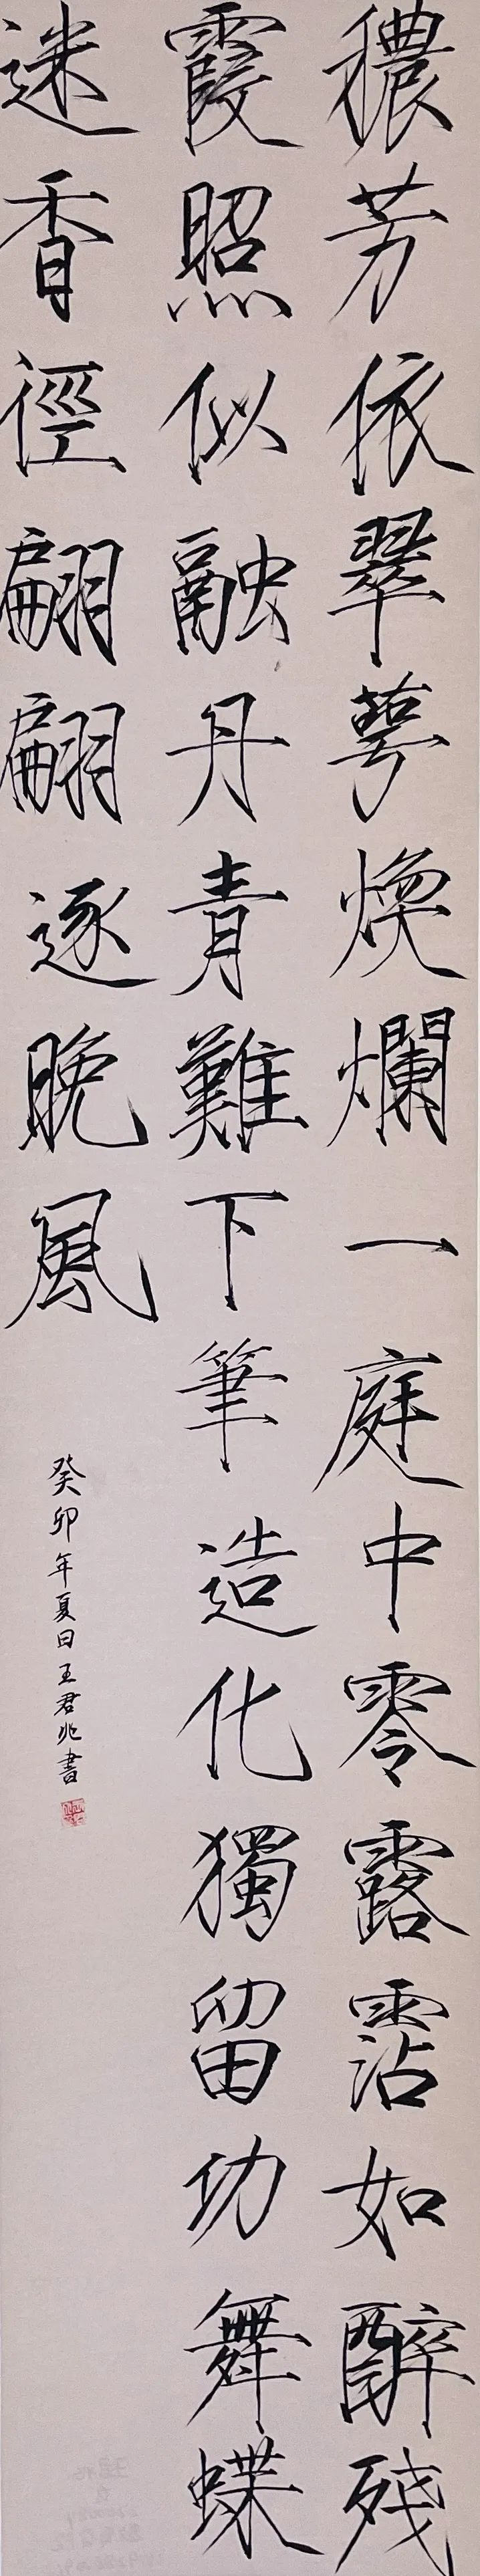 穠芳依翠萼煥爛一庭中零露霑如醉殘
霞照似融丹青難下筆造化獨留功舞蝶
迷香徑翩翩逐晚風
癸卯年夏日王君兆書